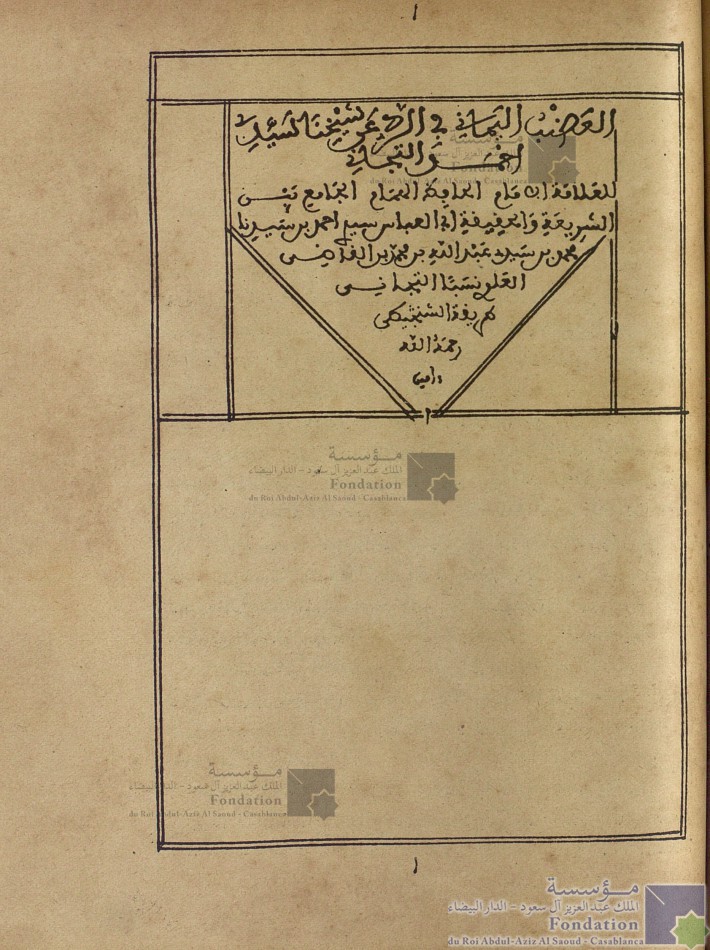 ١
العضب اليماني في الرد عن شيخنا سيدي
احمد التجاني
للعلامة الامام الحافظ الهمام الجامع بين
الشريعة والحقيقة ابي العباس سيدي احمد بن سيدنا
محمد بن سيدي عبد الله بن محمد بن القاضي
العلوي نسبا التجاني
طريقة الشنجيطي
رحمه الله
ءامين
م
١
مؤسسة
الملك عبد العزيز آل سعود - الدار البيضاء
Fondation
du Roi Abdul-Aziz Al Saoud - Casablanca
مؤسسة
الملك عبد العزيز آل سعود - الدار البيضاء
Fondation
du Roi Abdul-Aziz Al Saoud - Casablanca
مؤسسة
الملك عبد العزيز آل سعود - الدار البيضاء
Fondation
du Roi Abdul-Aziz Al Saoud - Casablanca